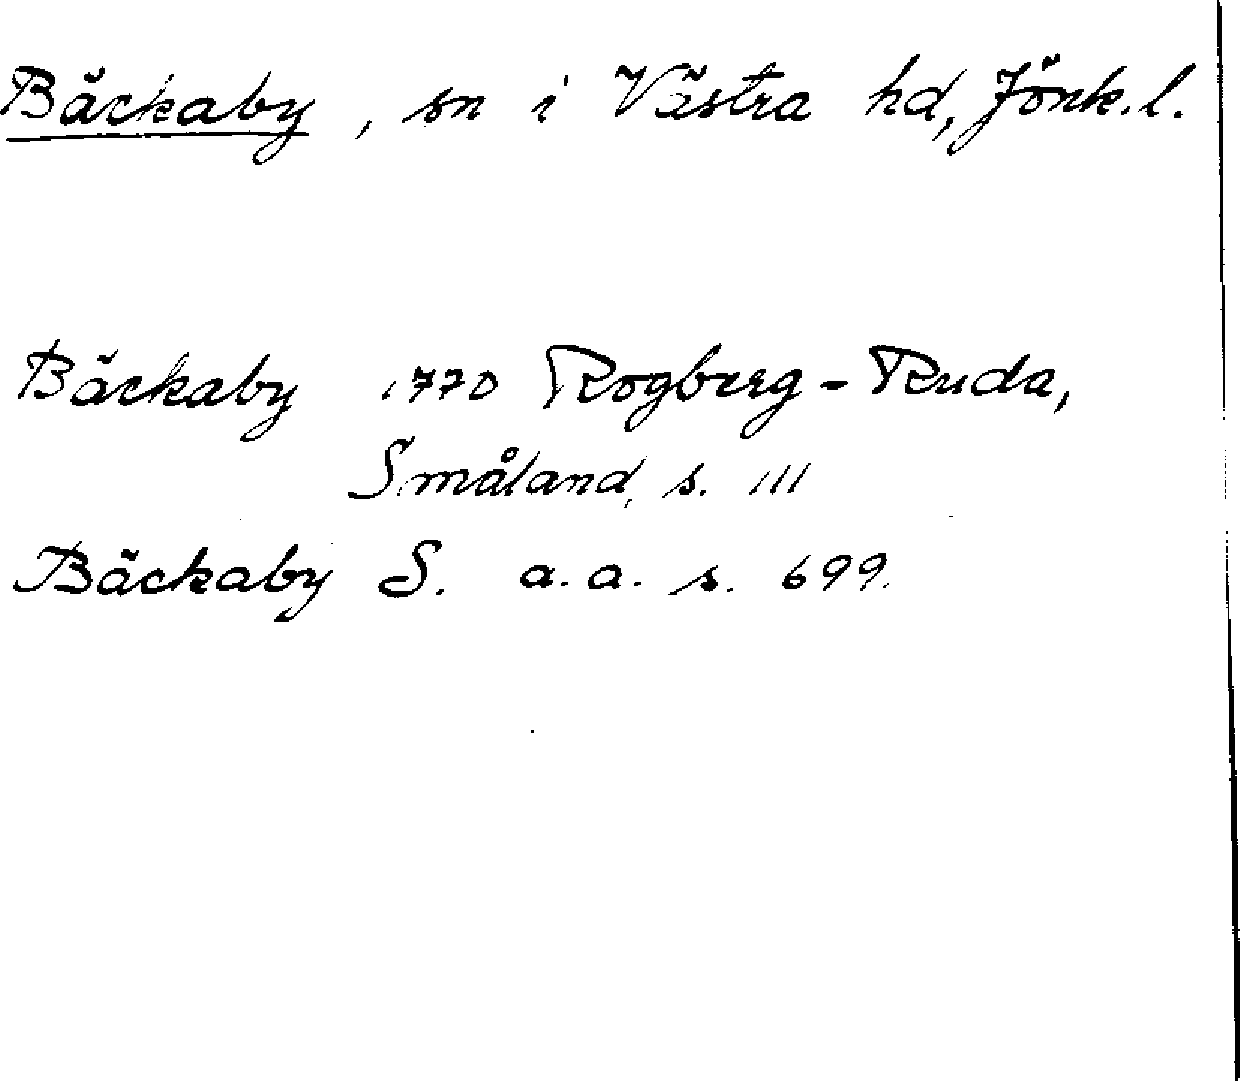 Bäckaby, sn i Västra hd, Jönk.l.
Bäckaby 1770 Rogberg-Ruda,
Småland, s. 111
Bäckaby S. a.a. s. 699.